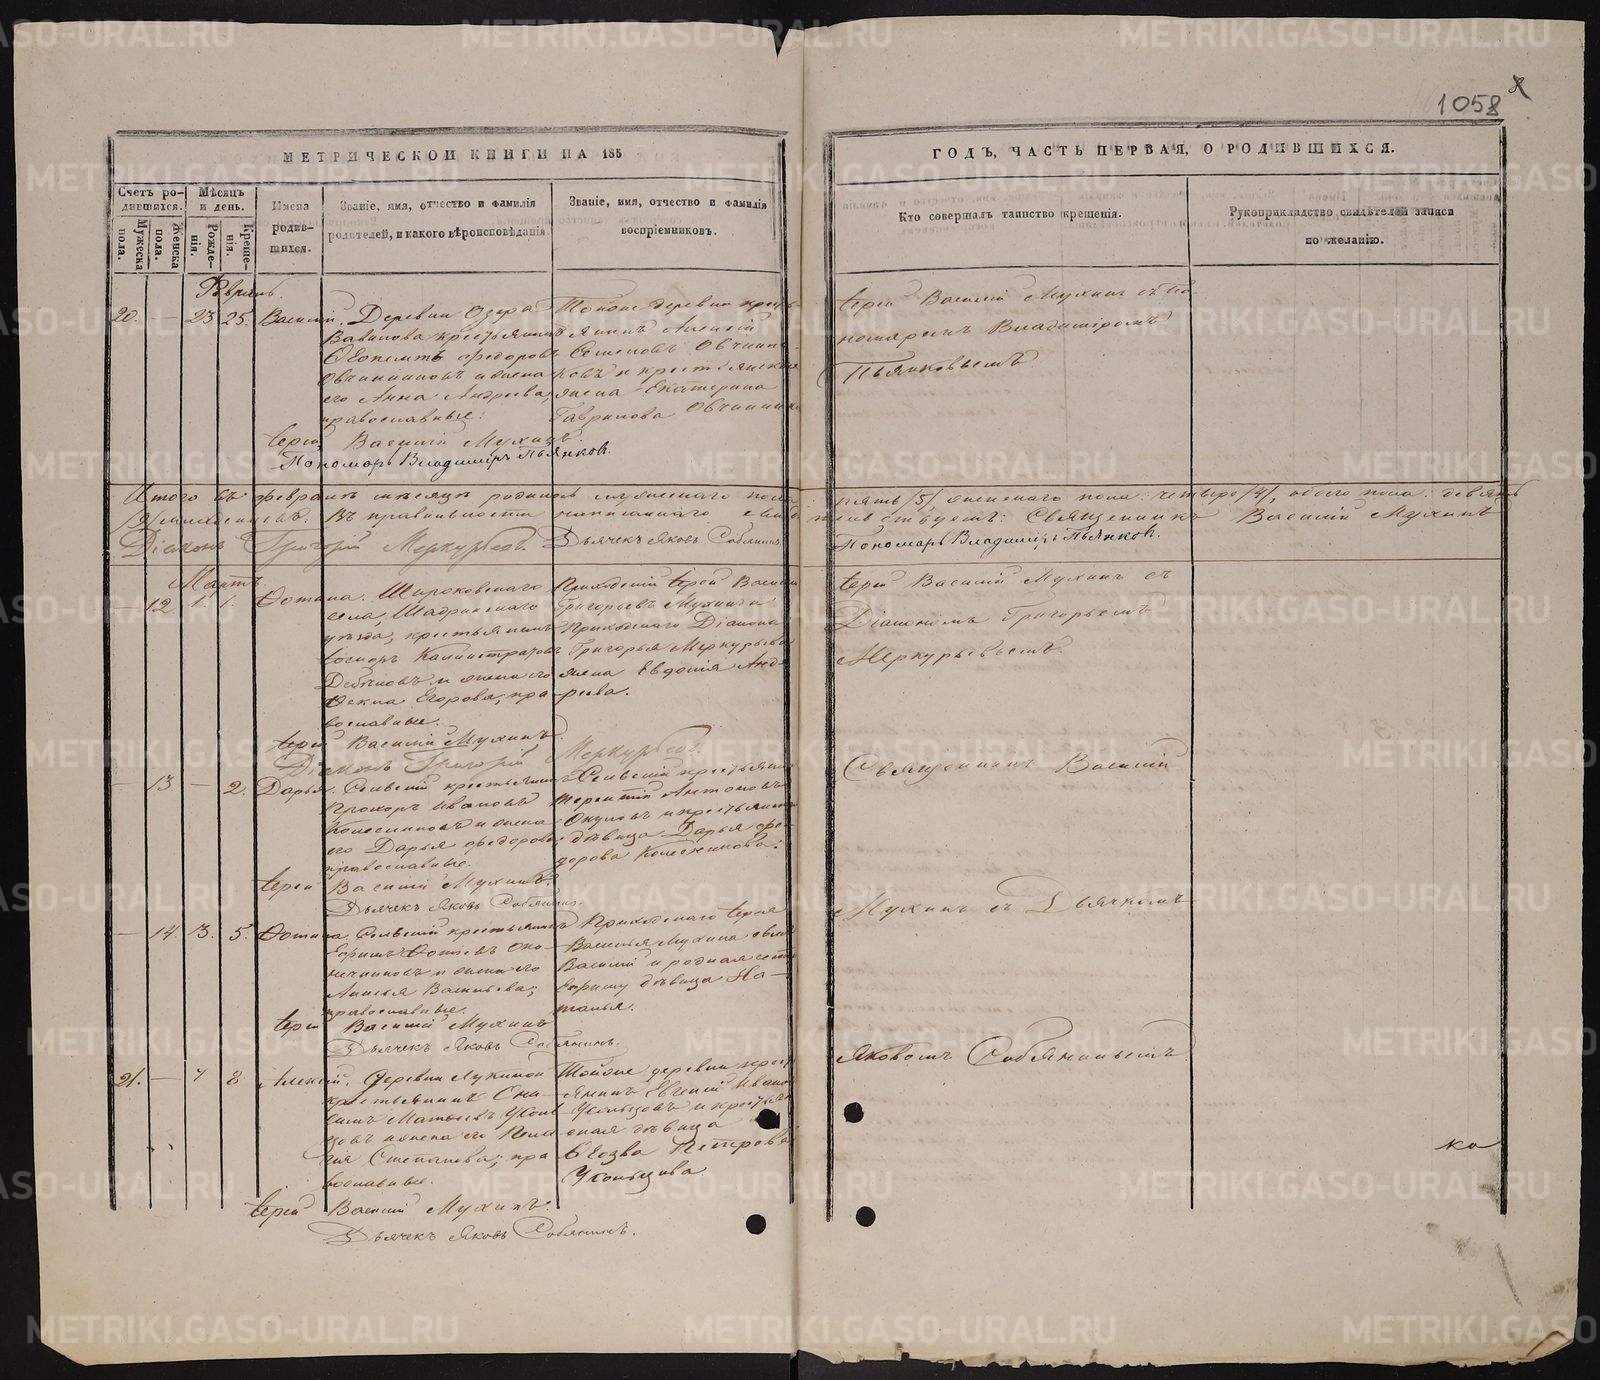 1058
МЕТРИЧЕСКОЙ КНИГИ НА 185
ГОДЪ, ЧАСТЬ ПЕРВАЯ, О РОДИВШИХСЯ.
Счетъ ро-
дившихся.
Мужеска
пола.
Женска
пола.
Мѣсяцъ
и день.
Рожде-
нія.
Креще-
нія.
Имена
родив-
шихся.
Званіе, имя, отчество и фамилія
родителей, и какого вѣроисповѣданія
Званіе, имя, отчество и фамилія
воспріемниковъ.
Кто совершалъ таинство крещенія.
Рукоприкладство свидѣтелей записи
по желанію.
Февраль.
20. — 23 25. Василій.
Деревни Озера
Вавилова крестьянинъ
Ѳеоктистъ Федоровъ
Овчинниковъ и жена
его Анна Андреева,
православные.
Тойже деревни кресть-
янинъ Алексей
Семеновъ Овчинни-
ковъ и крестьянская
жена Екатерина
Гаврилова Овчинникова
Іерей Василий Мухинъ съ По-
номаремъ Владиміромъ
Пьянковымъ
Іерей Василий Мухинъ.
Пономарь Владимиръ Пьянков.
Итого въ феврале месяце родилось мужескаго пола пять /5/ женскаго пола четыре /4/, обоего пола девять
/9/ младенцевъ. Въ правильности написаннаго свидетельствуетъ: Священникъ Василий Мухинъ
Діаконъ Григорій Меркурьев. Дьячекъ Яковъ Собянинъ.
Пономарь Владимиръ Пьянков.
Мартъ.
— 12 1. 1. Фотина.
Широковскаго
села, Шадринскаго
уезда, крестьянинъ
Калистратовъ
и жена его
Фекла Егорова, пра-
вославные.
Приходский Іерей Василий
Григорьевъ Мухинъ и
Приходскаго Діакона
Григорья Меркурьева
жена Евдокія Анд-
реева.
Іерей Василий Мухинъ съ
Діакономъ Григорьемъ
Меркурьевымъ.
Іерей Василий Мухинъ.
Діаконъ Григорій Меркурьев.
— 13 — 2. Дарья.
Сельский крестьянинъ
Прохоръ Ивановъ
Колесниковъ и жена
его Дарья Федорова,
православные.
Сельский крестьянинъ
Терентий Антоновъ
Окуловъ и крестьянская
девица Дарья Фе-
дорова Колесникова.
Священникъ Василий
Іерей Василий Мухинъ.
Дьячекъ Яковъ Собянинъ.
Мухинъ съ Дьячкомъ
— 14. 3. 5. Фотина.
Сельский крестьянинъ
Ефимъ Фотеевъ Око-
нечниковъ и жена его
Анисья Васильева;
православные.
Приходскаго Іерея
Василья Мухина сынъ
Василий и родная сестра
Ефиму девица На-
талья.
Іерей Василий Мухинъ
Дьячекъ Яковъ Собянинъ.
Яковомъ Собянинымъ.
21. — 7 8 Алексей.
Деревни Мухиной
крестьянинъ
Матвеевъ Усоль-
цовъ и жена его Пела-
гия Степанова; пра-
вославные.
Тойже деревни крест-
янинъ Евгений Иванов
Усольцовъ и крестьян-
ская девица
Петрова
Усольцова.
ка
Іерей Василий Мухинъ.
Дьячекъ Яковъ Собянинъ.
METRIKI.GASO-URAL.RU